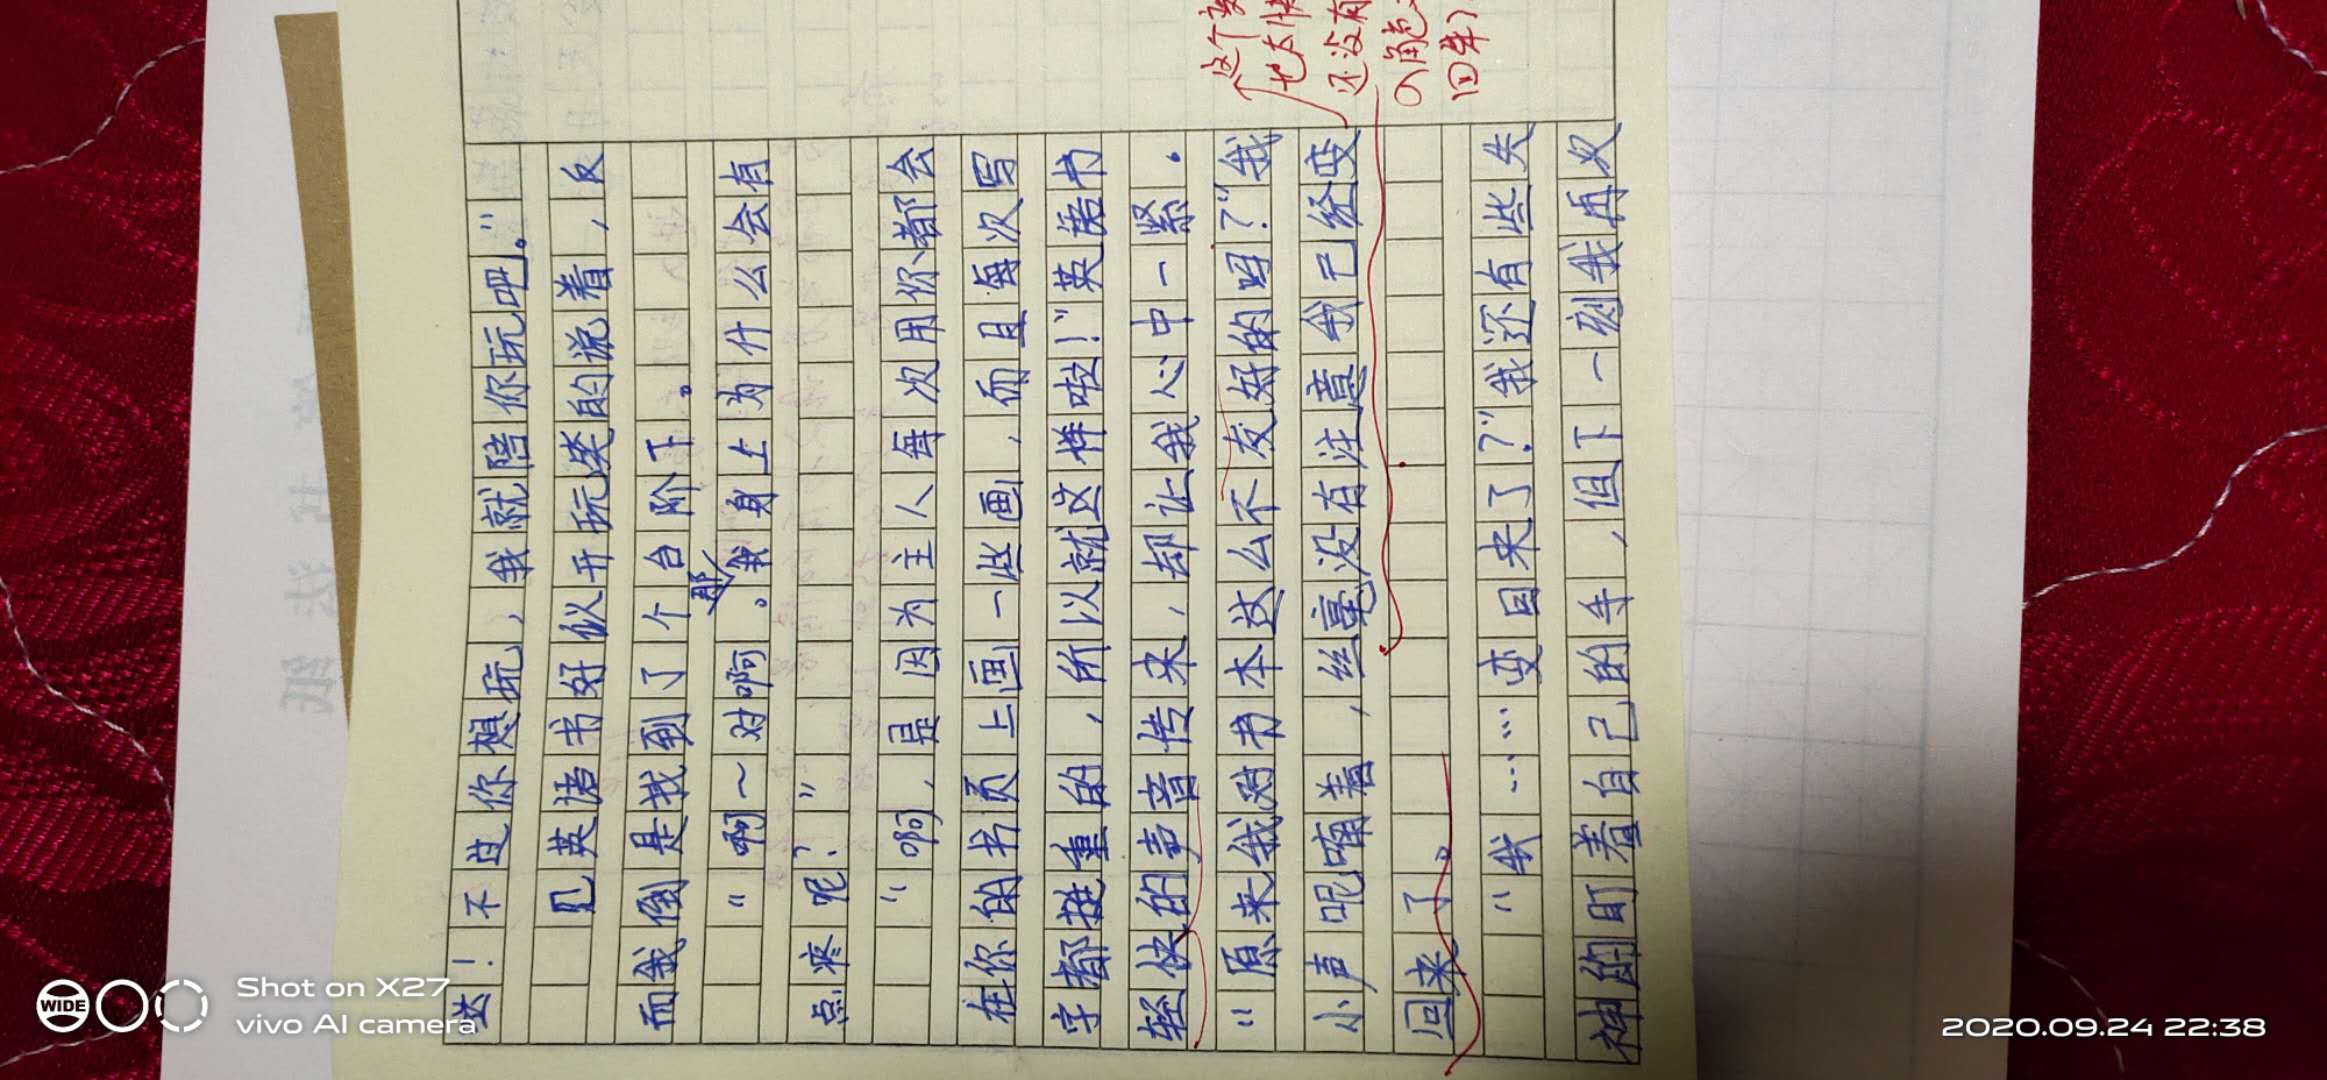 这个
他太快
还没有
回
哒！不过你想玩，我就陪你玩吧。”
见英语书好似开玩笑的说着，反
而我倒是找到了个台阶下。
“啊～对啊。那我身上为什么会有
点疼呢？”
“啊，是因为主人每次用你都会
在你的书页上画一些画，而且每次写
字都挺重的，所以就这样啦！”英语书
轻快的声音传来，却让我心中一紧。
“原来我对书本这么不友好的吗？”我
小声呢喃着，丝毫没有注意我已经变
回来了。
“我……变回来了？”我还有些失
神的盯着自己的手，但下一刻我再次
Shot on X27
vivo AI camera
WIDE
2020.09.24 22:38